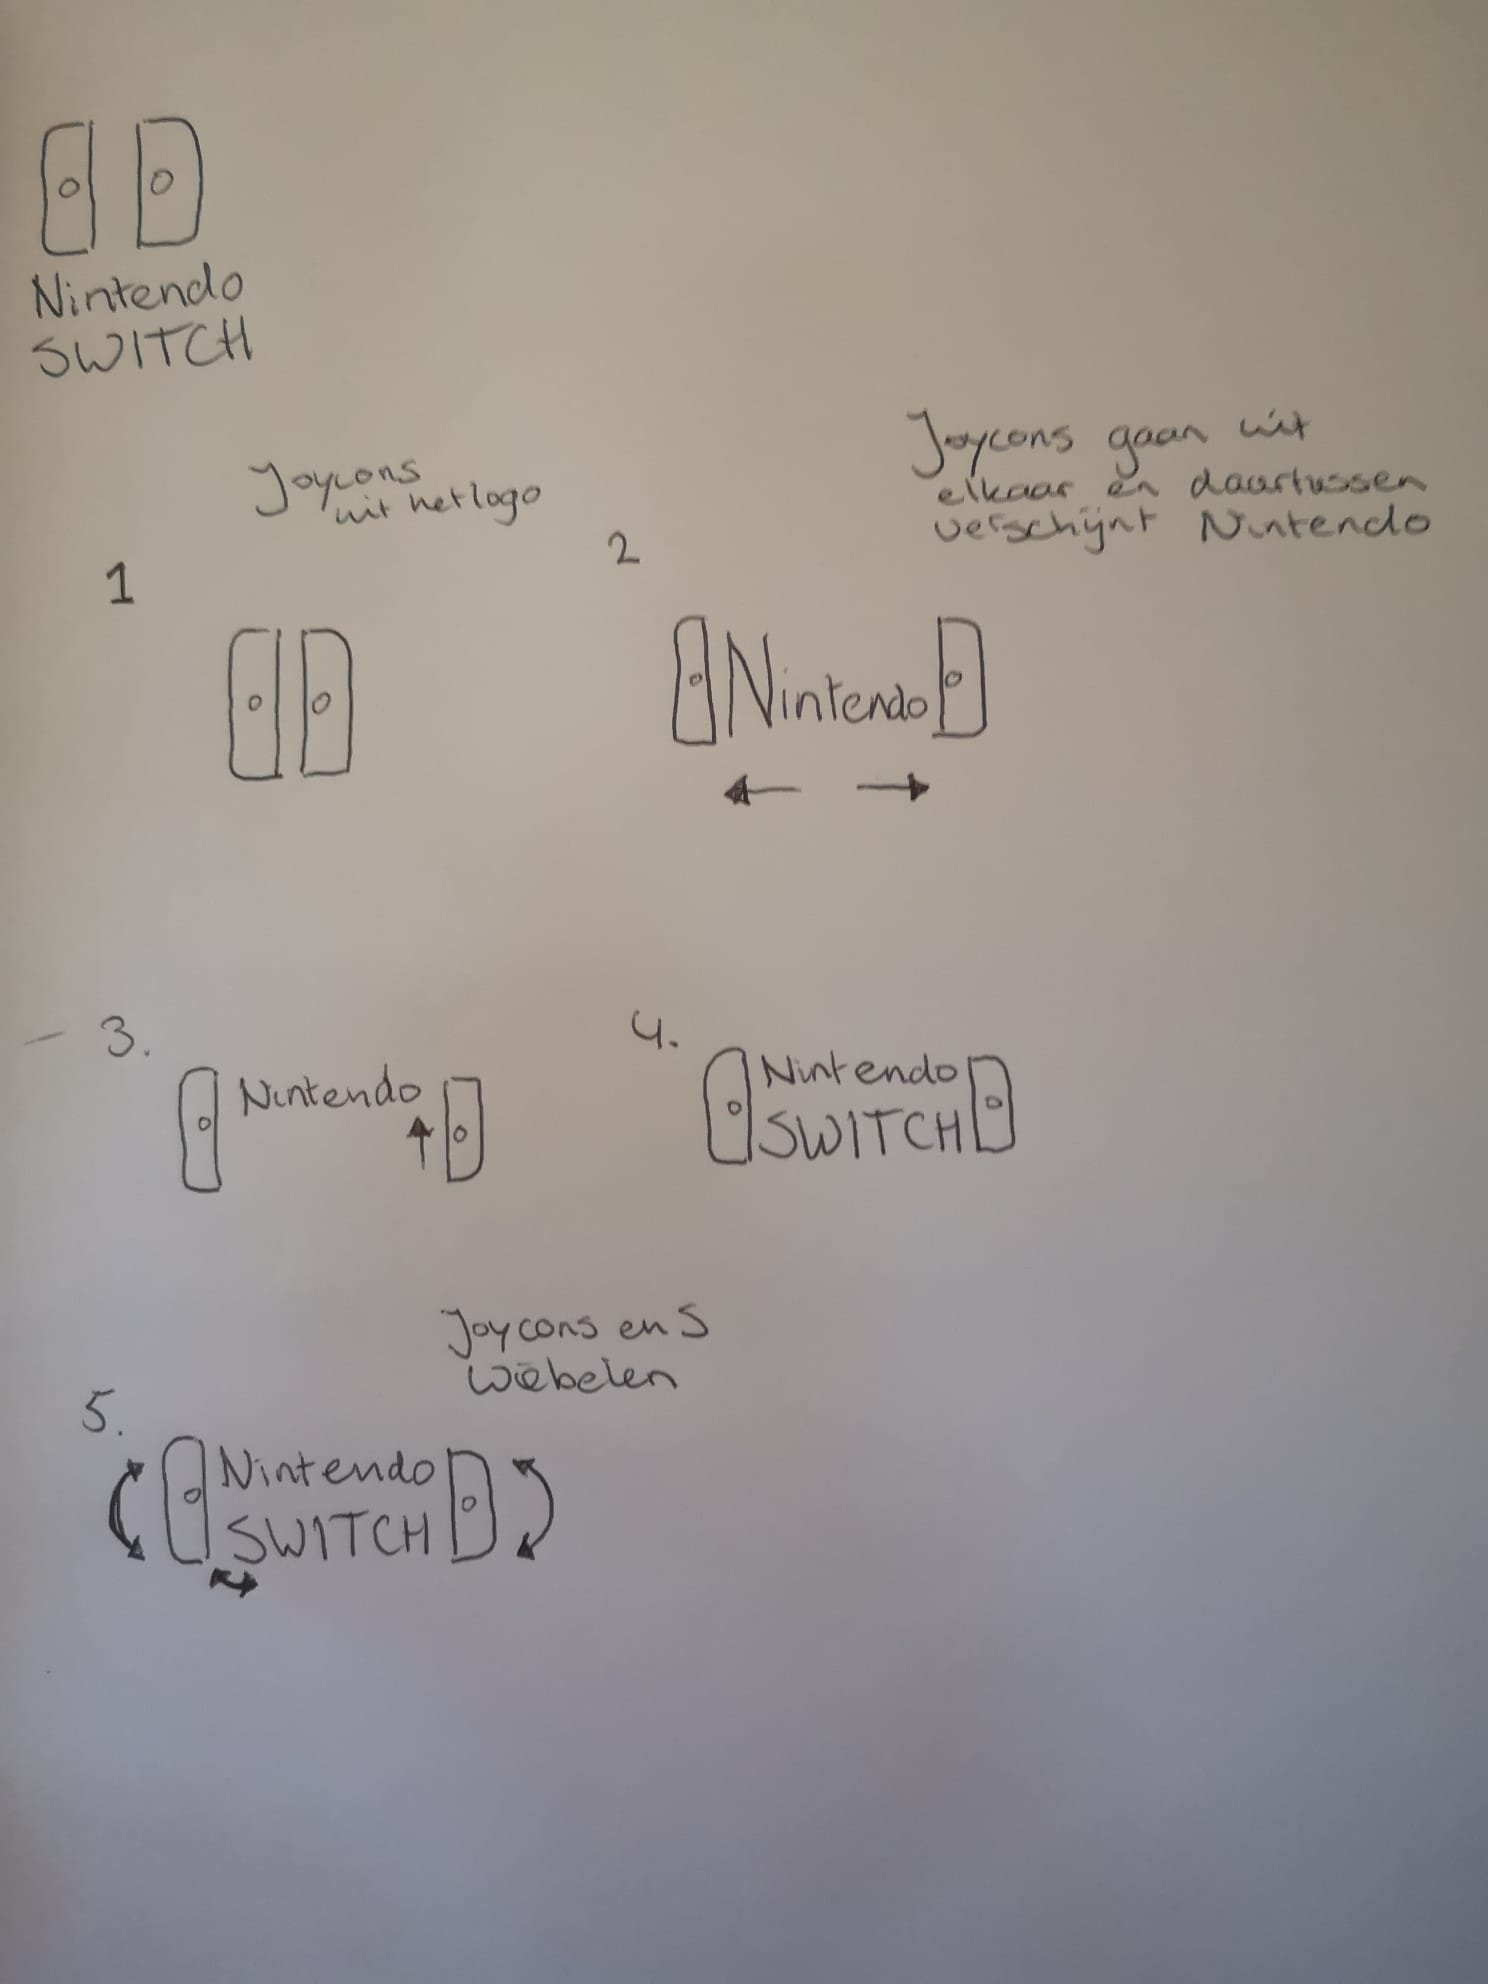 Nintendo
SWITCH
Joycons
uit het logo
Joycons gaan uit
elkaar en daartussen
verschijnt Nintendo
1
2
Nintendo
3.
Nintendo
4.
Nintendo
SWITCH
Joycons en S
wiebelen
5.
Nintendo
SWITCH